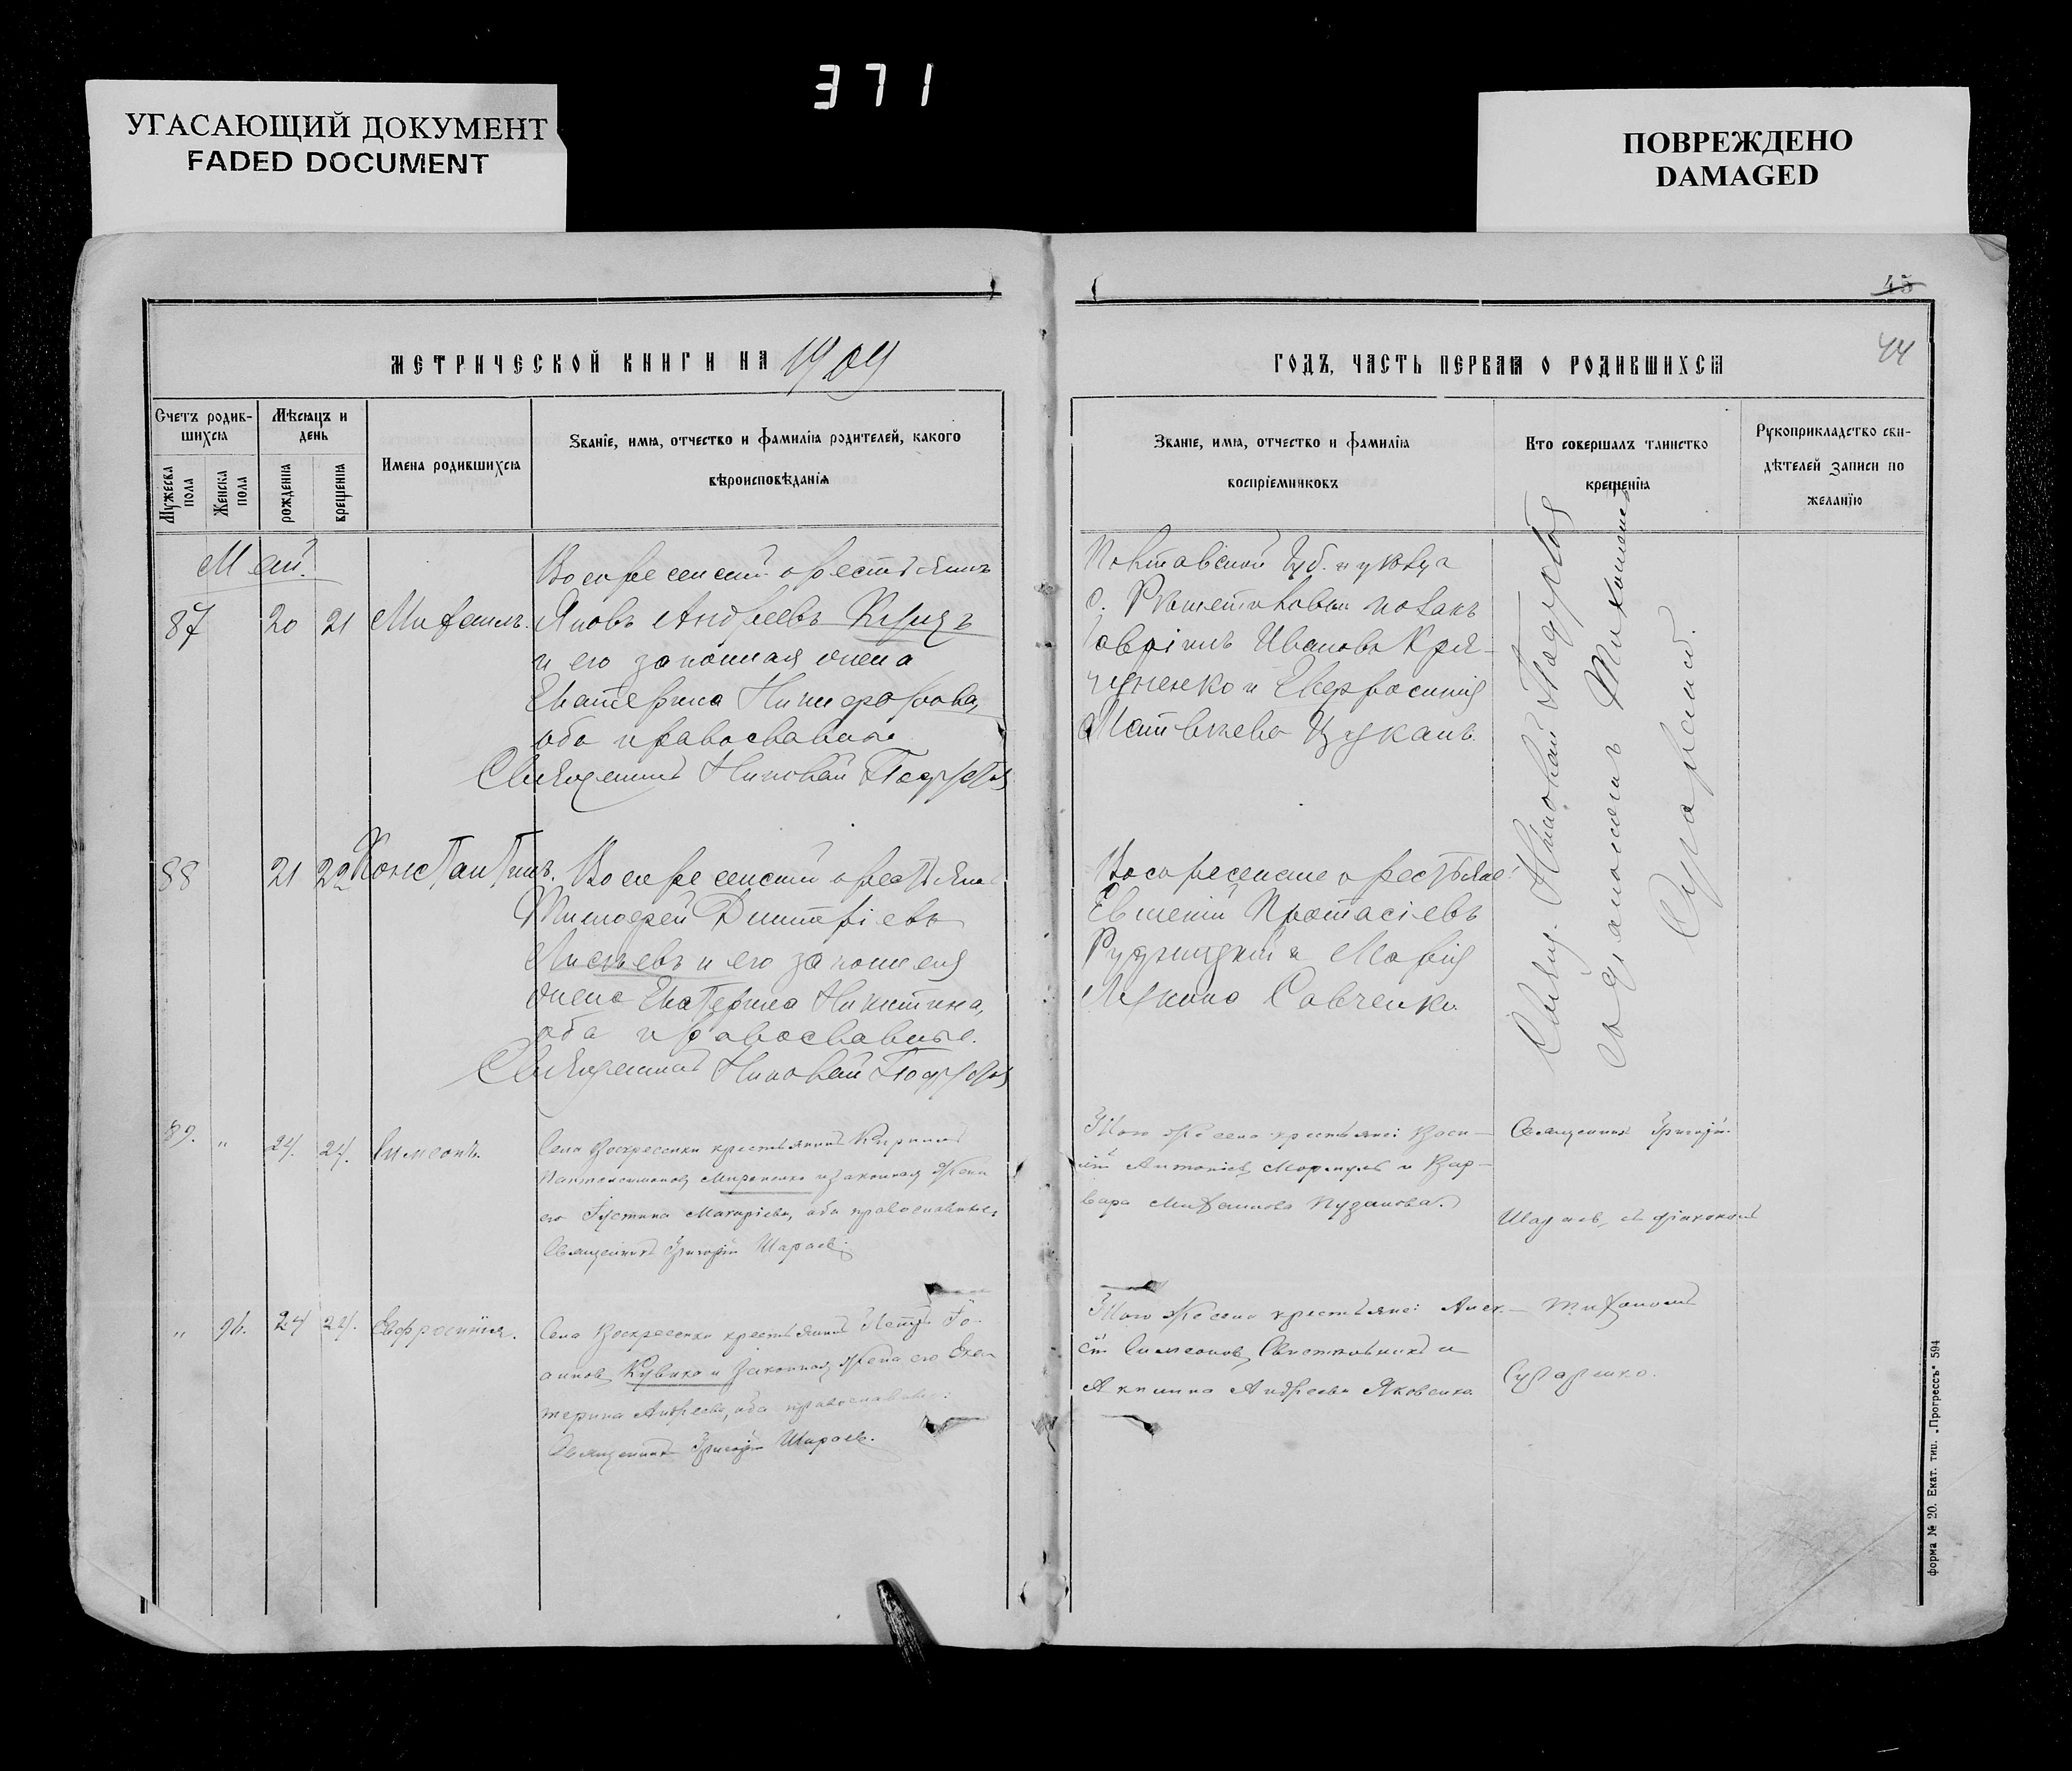 371
УГАСАЮЩИЙ ДОКУМЕНТ
FADED DOCUMENT
ПОВРЕЖДЕНО
DAMAGED
45
44
МЕТРИЧЕСКОЙ КНИГИ НА 1909
ГОДЪ, ЧАСТЬ ПЕРВАЯ О РОДИВШИХСЯ
Счетъ родив-
шихся
Мужеска пола
Женска пола
Мѣсяцъ и
день
рожденія
крещенія
Имена родившихся
Званіе, имя, отчество и фамилія родителей, какого
вѣроисповѣданія
Званіе, имя, отчество и фамилія
воспріемниковъ
Кто совершалъ таинство
крещенія
Рукоприкладство сви-
дѣтелей записи по
желанію
Май.
87 20 21 Михаилъ.
Воскресенскій крестьянинъ
Яковъ Андреевъ
и его законная жена
Екатерина Никифорова,
оба православные
Священникъ Николай
Полтавской губ. и уѣзда
с. Рѣшетиловки козакъ
Гавріилъ Ивановъ Кря-
и Евфросинія
Матвѣева Цуканъ.
88 21 22 Константинъ.
Воскресенскій крестьянинъ
Тимофей Димитріевъ
и его законная
жена Екатерина Никитина,
оба православные.
Священникъ Николай
Воскресенские крестьяне:
Евгений Протасіевъ
Рудницкій и Марія
Савченко.
Свящ. Николай
съ діакономъ Тихономъ
Сухаренко.
89. " 24. 24. Симеонъ.
Села Воскресенки крестьянинъ Кириллъ
Пантелеимоновъ Мироненко и законная жена
его Іустина Макаріева, оба православные.
Священникъ Григорій Шараевъ.
Того же села крестьяне: Васи-
лій Антоніевъ и Вар-
вара Михаилова Пузанова.
Священникъ Григорій
Шараевъ съ діакономъ
" 90. 24 24. Евфросинія.
Села Воскресенки крестьянинъ Петръ Іо-
анновъ и законная жена его Ека-
терина Андреева, оба православные.
Священникъ Григорій Шараевъ.
Того же села крестьяне: Алек-
сій Симеоновъ и
Акилина Андреева Яковенко.
Тихономъ
Сухаренко.
форма № 20. Екат. тип. „Прогрессъ" 594